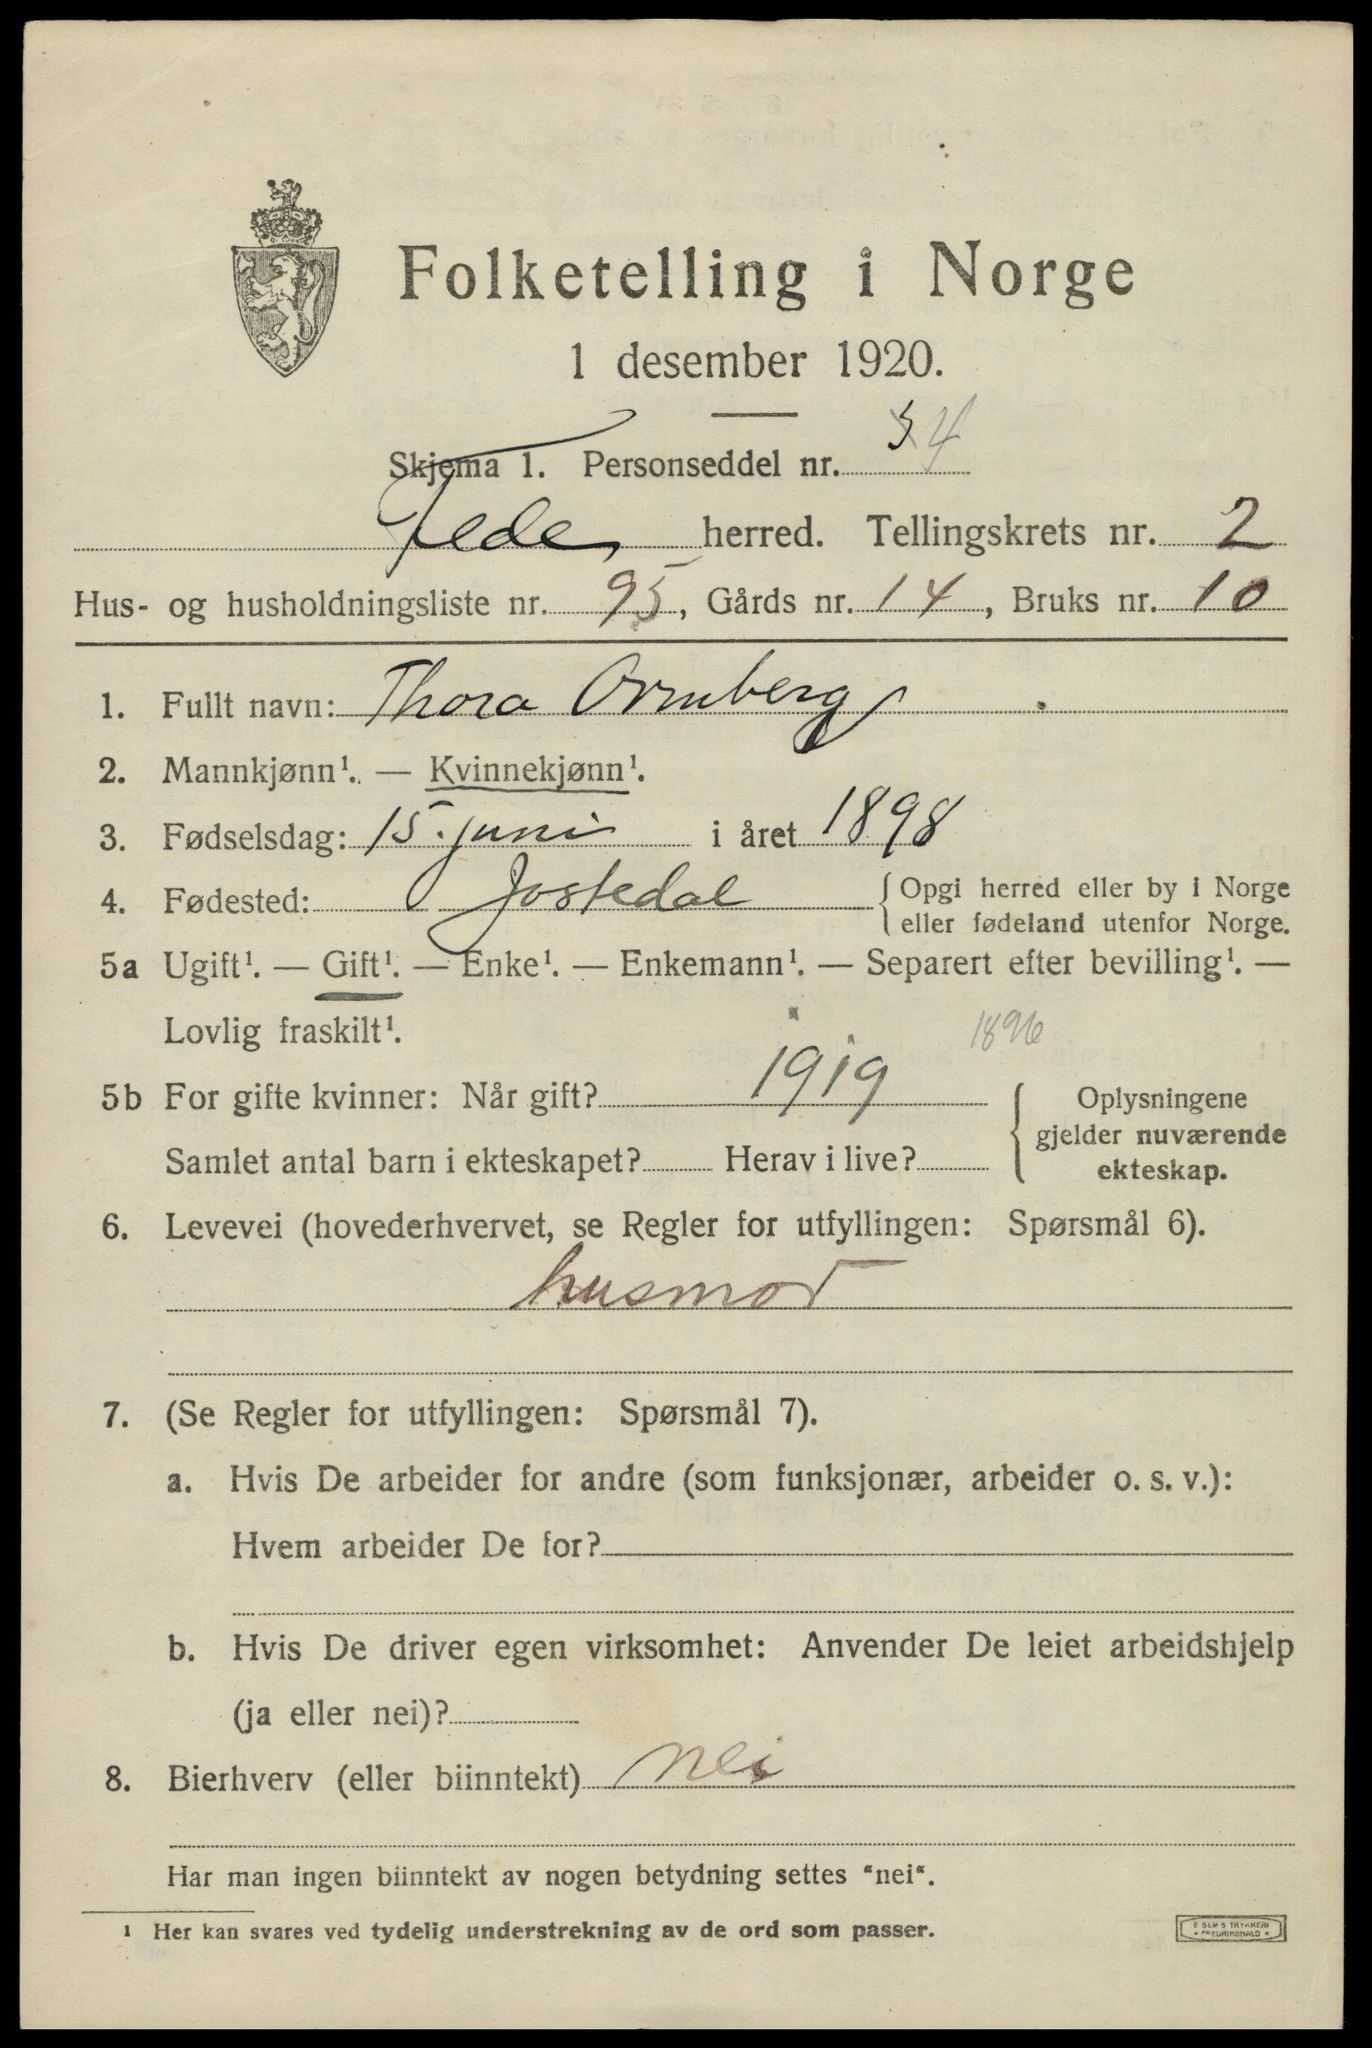 Folketelling i Norge
1 desember 1920.
Skjema 1. Personseddel nr. 34
Fede herred. Tellingskrets nr. 2
Hus- og husholdningsliste nr. 95, Gårds nr. 14, Bruks nr. 10
1. Fullt navn: Thora Ormberg
2. Mannkjønn¹. — Kvinnekjønn¹.
3. Fødselsdag: 15. juni i året 1898
4. Fødested: Jostedal { Opgi herred eller by i Norge
eller fødeland utenfor Norge.
5a Ugift¹. — Gift¹. — Enke¹. — Enkemann¹. — Separert efter bevilling¹. —
Lovlig fraskilt¹.
1896
5b For gifte kvinner: Når gift? 1919
Samlet antal barn i ekteskapet? Herav i live?
{ Oplysningene
gjelder nuværende
ekteskap.
6. Levevei (hovederhvervet, se Regler for utfyllingen: Spørsmål 6).
husmor
7. (Se Regler for utfyllingen: Spørsmål 7).
a. Hvis De arbeider for andre (som funksjonær, arbeider o. s. v.):
Hvem arbeider De for?
b. Hvis De driver egen virksomhet: Anvender De leiet arbeidshjelp
(ja eller nei)?
8. Bierhverv (eller biinntekt) nei
Har man ingen biinntekt av nogen betydning settes "nei".
¹ Her kan svares ved tydelig understrekning av de ord som passer.
E SEM'S TRYKKERI
FREDRIKSHALD